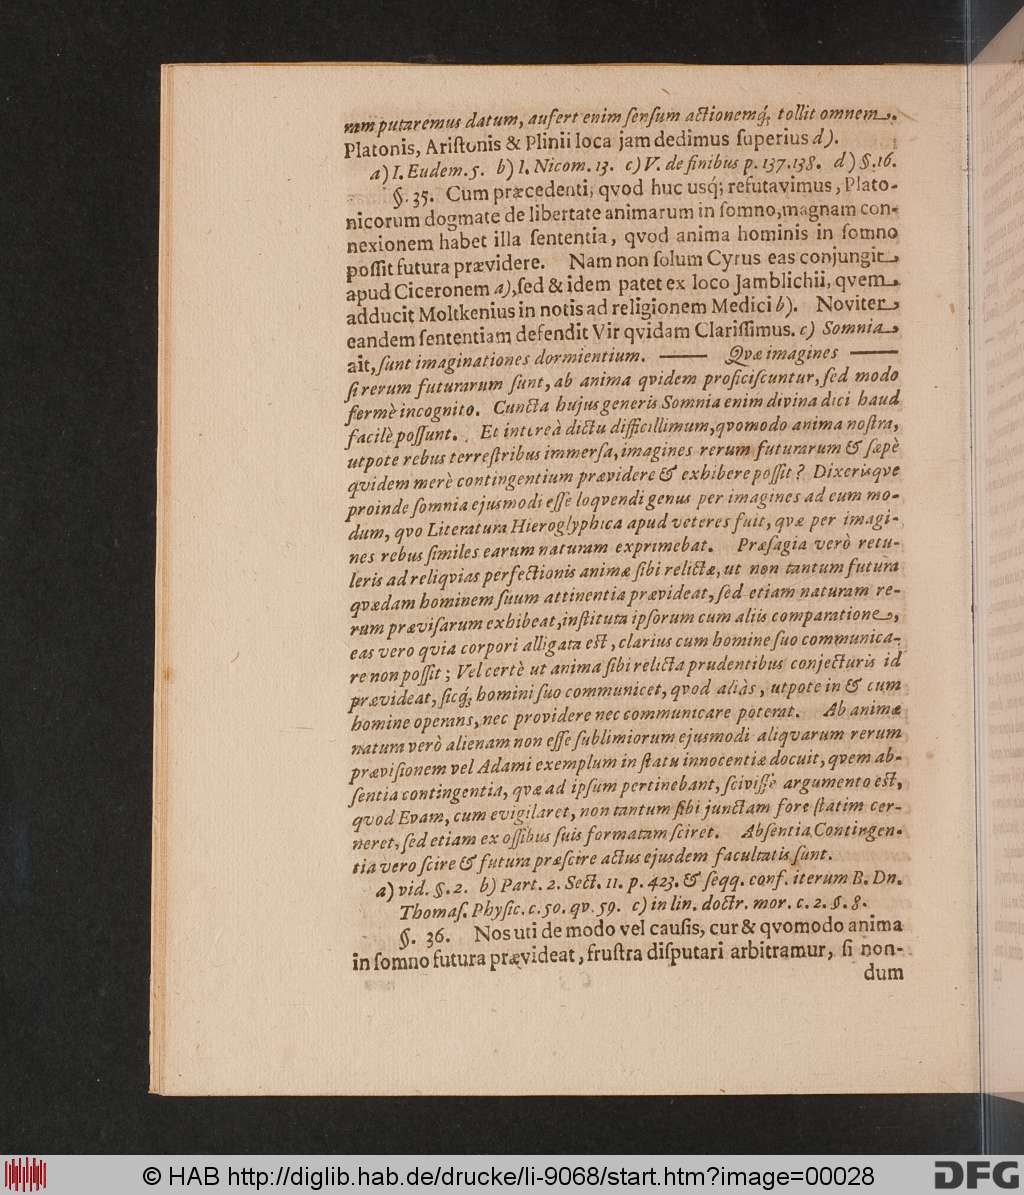 rum putaremus datum, aufert enim ſenſum actionemq́; tollit omnem.
Platonis, Ariſtonis & Plinii loca jam dedimus ſuperius d).
a) I. Eudem. 5. b) I. Nicom. 13. c) V. de finibus p. 137.138. d) §. 16.
§. 35. Cum præcedenti, qvod huc usq́; refutavimus, Plato-
nicorum dogmate de libertate animarum in ſomno, magnam con-
nexionem habet illa ſententia, qvod anima hominis in ſomno
poſſit futura prævidere. Nam non ſolum Cyrus eas conjungit
apud Ciceronem a), ſed & idem patet ex loco Jamblichii, qvem
adducit Moltkenius in notis ad religionem Medici b). Noviter
eandem ſententiam defendit Vir qvidam Clariſſimus. c) Somnia,
ait, ſunt imaginationes dormientium. —— Qvæ imagines ——
ſi rerum futurarum ſunt, ab anima qvidem proficiſcuntur, ſed modo
fermè incognito. Cuncta hujus generis Somnia enim divina dici haud
facilè poſſunt. Et intereà dictu difficillimum, qvomodo anima noſtra,
utpote rebus terreſtribus immerſa, imagines rerum futurarum & ſæpè
qvidem merè contingentium prævidere & exhibere poſſit? Dixerisqve
proinde ſomnia ejusmodi eſſe loqvendi genus per imagines ad eum mo-
dum, qvo Literatura Hieroglyphica apud veteres fuit, qvæ per imagi-
nes rebus ſimiles earum naturam exprimebat. Præſagia verò retu-
leris ad reliqvias perfectionis animæ ſibi relictæ, ut non tantum futura
qvædam hominem ſuum attinentia prævideat, ſed etiam naturam re-
rum præviſarum exhibeat, inſtituta ipſorum cum aliis comparatione,
eas vero qvia corpori alligata eſt, clarius cum homine ſuo communica-
re non poſſit; Vel certè ut anima ſibi relicta prudentibus conjecturis id
prævideat, ſicq́; homini ſuo communicet, qvod aliàs, utpote in & cum
homine operans, nec providere nec communicare poterat. Ab animæ
natura verò alienam non eſſe ſublimiorum ejusmodi aliqvarum rerum
præviſionem vel Adami exemplum in ſtatu innocentiæ docuit, qvem ab-
ſentia contingentia, qvæ ad ipſum pertinebant, ſciviſſe argumento eſt,
qvod Evam, cum evigilaret, non tantum ſibi junctam fore ſtatim cer-
neret, ſed etiam ex oſſibus ſuis formatam ſciret. Abſentia Contingen-
tia vero ſcire & futura præſcire actus ejusdem facultatis ſunt.
a) vid. §. 2. b) Part. 2. Sect. 11. p. 423. & ſeqq. conf. iterum B. Dn.
Thomaſ. Phyſic. c. 50. qv. 59. c) in lin. doctr. mor. c. 2. §. 8.
§. 36. Nos uti de modo vel cauſis, cur & qvomodo anima
in ſomno futura prævideat, fruſtra diſputari arbitramur, ſi non-
dum
© HAB http://diglib.hab.de/drucke/li-9068/start.htm?image=00028
DFG